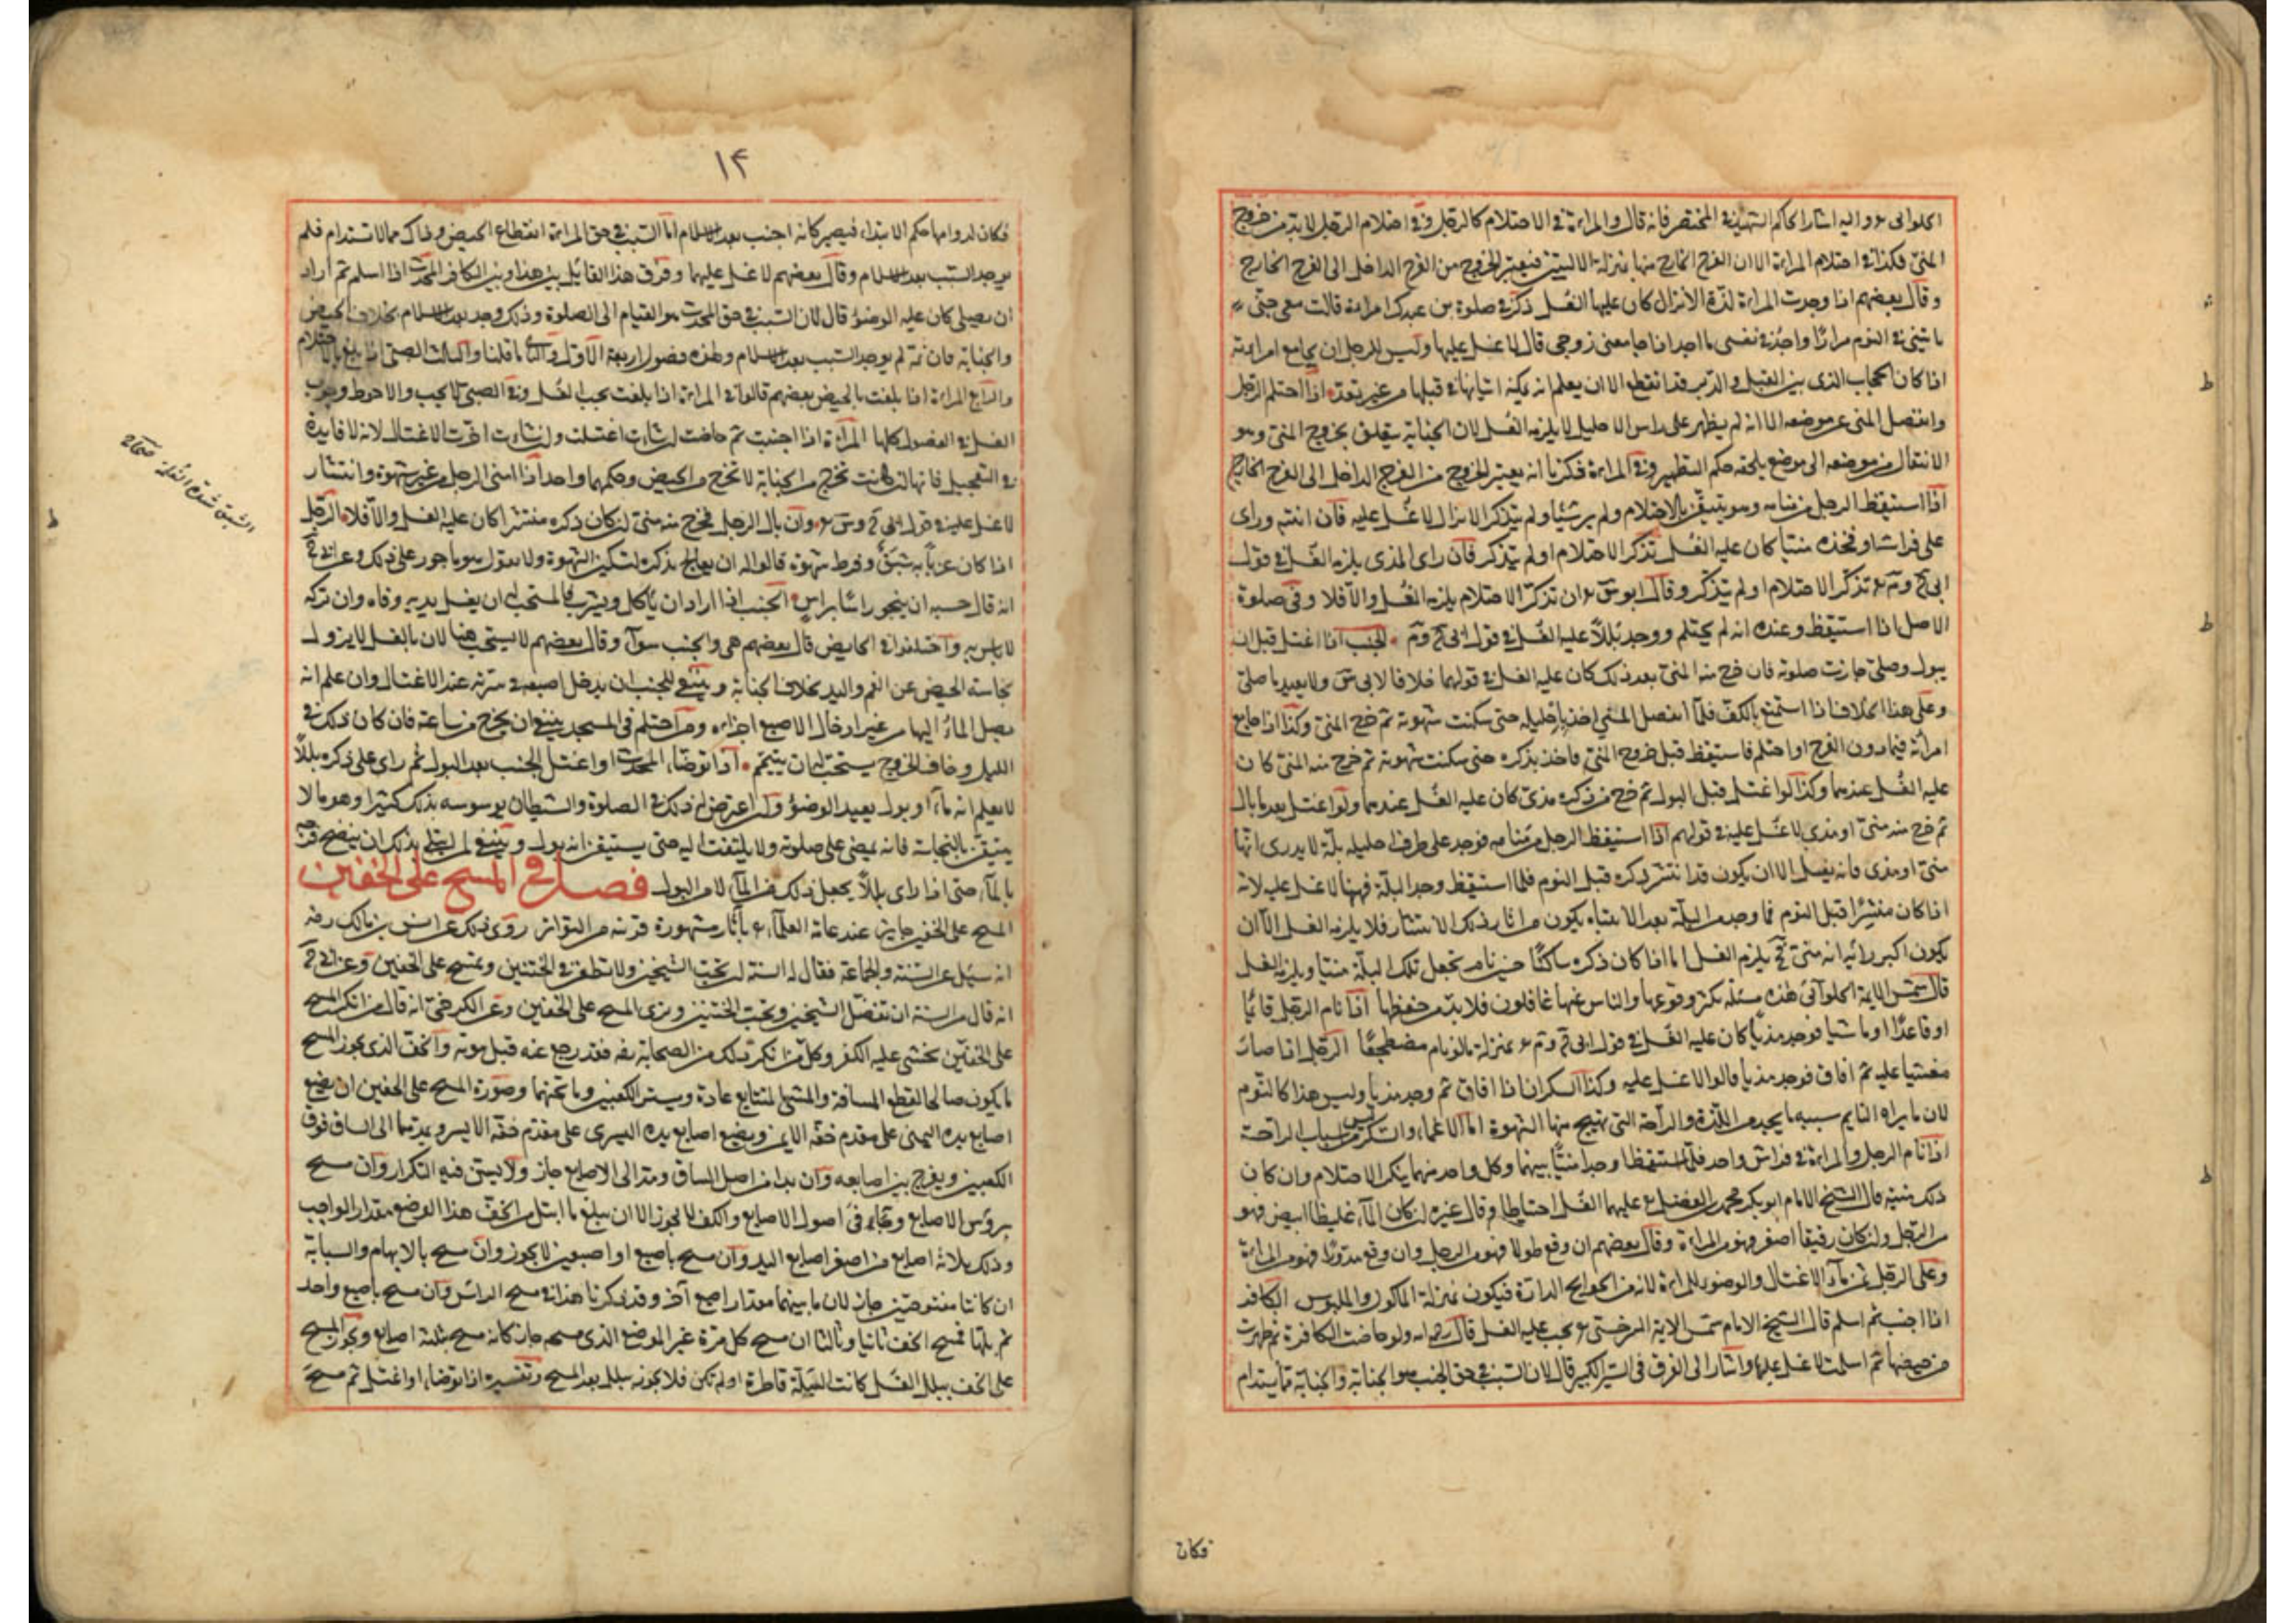 الحلوانى ء واليه اشار الحاكم الشهيد فى المختصر فانه قال والمراءة فى الاحتلام كالرجل وفى احتلام الرجل لا بد من خروج
المنى فكذا فى احتلام المراءة الا ان الفرج الخارج منها بمنزلة الاليتين فيعتبر الخروج من الفرج الداخل الى الفرج الخارج
وقال بعضهم اذا وجدت المراءة لذة الانزال كان عليها الغسل ذكره فى صلوة بن عبدك امراءة قالت معى جنى
ياتينى فى النوم مرارا واجد فى نفسى ما اجد اذا جامعنى زوجى قال لا غسل عليها وليس للرجل ان يجامع امراءته
اذا كان الحجاب الذى بين القبل والدبر قد انقطع الا ان يعلم انه يمكنه اتيانها فى قبلها من غير تعد اذا احتلم الرجل
وانفصل المنى عن موضعه الا انه لم يظهر على راس الاحليل لا يلزمه الغسل لان الجنابة يتعلق بخروج المنى وهو
الانتقال من موضعه الى موضع يلحقه حكم التطهير وفى المراءة ذكرنا انه يعتبر الخروج من الفرج الداخل الى الفرج الخارج
اذا استيقظ الرجل من منامه وهو يتيقن بالاحتلام ولم ير شيا ولم يتذكر الانزال لا غسل عليه فان انتبه وراى
على فراشه او فخذه منيا كان عليه الغسل تذكر الاحتلام او لم يتذكر فان راى المذى يلزمه الغسل فى قول
ابى ح وم ء تذكر الاحتلام او لم يتذكر وقال ابو س ء ان تذكر الاحتلام يلزمه الغسل والا فلا وفى صلوة
الاصل اذا استيقظ وعنده انه لم يحتلم ووجد بللا عليه الغسل فى قول ابى ح وم الجنب اذا اغتسل قبل ان
يبول وصلى جازت صلوته فان خرج منه المنى بعد ذلك كان عليه الغسل فى قولهما خلافا لابى س ولا يعيد ما صلى
وعلى هذا الخلاف اذا استمتع بالكف فلما انفصل المنى اخذ باحليله حتى سكنت شهوته ثم خرج المنى وكذا اذا جامع
امرأته فيما دون الفرج او احتلم فاستيقظ قبل خروج المنى فاخذ بذكره حتى سكنت شهوته ثم خرج منه المنى كان
عليه الغسل عندهما وكذا لو اغتسل قبل البول ثم خرج من ذكره مذى كان عليه الغسل عندهما ولو اغتسل بعد ما بال
ثم خرج منه منى او مذى لا غسل عليه فى قولهم اذا استيقظ الرجل من منامه فوجد على طرف احليله بلة لا يدرى انها
منى او مذى فانه يغسل الا ان يكون قد انتشر ذكره قبل النوم فلما استيقظ وجد البلة فههنا لا غسل عليه لانه
اذا كان منتشرا قبل النوم فما وجد من البلة بعد الانتباه يكون من اثار ذلك الانتشار فلا يلزمه الغسل الا ان
يكون اكبر رايه انه منى فح يلزمه الغسل اما اذا كان ذكره ساكنا حين نام يجعل تلك البلة منيا ويلزمه الغسل
قال شمس الايمة الحلوانى هذه مسئلة يكثر وقوعها والناس عنها غافلون فلا بد من حفظها اذا نام الرجل قائما
او قاعدا او ماشيا فوجد مذيا كان عليه الغسل فى قول ابى ح وم ء بمنزلة ما لو نام مضطجعا الرجل اذا صار
مغشيا عليه ثم افاق فوجد مذيا قالوا لا غسل عليه وكذا السكران اذا افاق ثم وجد مذيا وليس هذا كالنوم
لان ما يراه النايم سببه ما يجد من اللذة والراحة التى تهيج منها الشهوة اما الاغماء والسكر ليس من اسباب الراحة
اذا نام الرجل والمراءة فى فراش واحد فلما استيقظا وجدا منيا بينهما وكل واحد منهما ينكر الاحتلام وان كان
ذلك منيه قال الشيخ الامام ابو بكر محمد بن الفضل ء عليهما الغسل احتياطا وقال غيره ان كان الماء غليظا ابيض فهو
من الرجل وان كان رقيقا اصفر فهو من المراءة وقال بعضهم ان وقع طولا فهو من الرجل وان وقع مدورا فهو من المراءة
وعلى الرجل ثمن ماء الاغتسال والوضوء للمراءة لانه من الحوايج الدارة فيكون بمنزلة الماكول والملبوس الكافر
اذا اجنب ثم اسلم قال الشيخ الامام شمس الايمة السرخسى ء يجب عليه الغسل قال رحمه الله ولو حاضت الكافرة ثم طهرت
من حيضها ثم اسلمت لا غسل عليها واشار الى الفرق فى السير الكبير قال لان السبب فى حق الجنب هو الجنابة والجنابة مما يستدام
فكان
١۴
فكان لدوامها حكم الابتداء فيصير كانه اجنب بعد الاسلام اما السبب فى حق المراءة انقطاع الحيض وذاك مما لا تستدام فلم
يوجد السبب بعد الاسلام وقال بعضهم لا غسل عليهما وفرق هذا القايل بين هذا وبين الكافر المحدث اذا اسلم ثم اراد
ان يصلى كان عليه الوضوء قال لان السبب فى حق المحدث هو القيام الى الصلوة وذلك وجد بعد الاسلام بخلاف الحيض
والجنابة فان ثمة لم يوجد السبب بعد الاسلام وهذه فصول اربعة الاول والثانى ما قلنا والثالث الصبى اذا بلغ بالاحتلام
والرابع المراءة اذا بلغت بالحيض بعضهم قالوا فى المراءة اذا بلغت يجب الغسل وفى الصبى لا يجب والاحوط وجوب
الغسل فى الفصول كلها المراءة اذا اجنبت ثم حاضت ان شاءت اغتسلت وان شاءت اخرت الاغتسال لانه لا فايدة
فى التعجيل فانها ان كانت تخرج من الجنابة لا تخرج من الحيض وحكمهما واحد اذا امنى الرجل من غير شهوة وانتشار
لا غسل عليه فى قول ابى ح وس ء وان بال الرجل فخرج منه منى ان كان ذكره منتشرا كان عليه الغسل والا فلا الرجل
اذا كان عزبا به شبق وفرط شهوة قالوا له ان يعالج بذكره لتسكين الشهوة ولا نقول هو ماجور على ذلك وعن ابى ح
انه قال حسبه ان ينجو راسا براس الجنب اذا اراد ان ياكل ويشرب فالمستحب له ان يغسل يديه وفاه وان تركه
لا باس به واختلفوا فى الحايض قال بعضهم هى والجنب سواء وقال بعضهم لا يستحب هنا لان بالغسل لا يزول
نجاسة الحيض عن الفم واليد بخلاف الجنابة وينبغى للجنب ان يدخل اصبعه فى سرته عند الاغتسال وان علم انه
يصل الماء اليها من غير ادخال الاصبع اجزاه ومن احتلم فى المسجد ينبغى ان يخرج من ساعته فان كان ذلك فى
الليل وخاف الخروج يستحب له ان يتيمم اذا توضاء المحدث او اغتسل الجنب بعد البول ثم راى على ذكره بللا
لا يعلم انه ماء او بول يعيد الوضوء وان اعترض له ذلك فى الصلوة والشيطان يوسوسه بذلك كثيرا وهو مما لا
يتيقن بالنجاسة فانه يمضى على صلوته ولا يلتفت اليه حتى يستيقن انه بول وينبغى لمن ابتلى بذلك ان ينضح فرجه
بالماء حتى اذا راى بللا يجعل ذلك من الماء لا من البول فصل فى المسح على الخفين
المسح على الخفين جايز عند عامة العلماء ء بآثار مشهورة قريبة من التواتر روى ذلك عن انس بن مالك رضه
انه سئل عن السنة والجماعة فقال له السنة ان تحب الشيخين ولا تطعن فى الختنين وتمسح على الخفين وعن ابى ح
انه قال من السنة ان تفضل الشيخين وتحب الختنين وترى المسح على الخفين وعن الكرخى انه قال من انكر المسح
على الخفين يخشى عليه الكفر وكل من انكر ذلك من الصحابة رضه فقد رجع عنه قبل موته والخف الذى يجوز المسح
ما يكون صالحا لقطع المسافة والمشى المتتابع عادة ويستر الكعبين وما تحتهما وصورة المسح على الخفين ان يضع
اصابع يده اليمنى على مقدم خفه الايمن ويضع اصابع يده اليسرى على مقدم خفه الايسر ويمدهما الى الساق فوق
الكعبين ويفرج بين اصابعه وان بدا من اصل الساق ومد الى الاصابع جاز ولا يسن فيه التكرار وان مسح
بروس الاصابع وتجافى اصول الاصابع والكف لا يجوز الا ان يبلغ ما ابتل من الخف هذا الموضع مقدار الواجب
وذلك ثلاثة اصابع من اصغر اصابع اليد وان مسح باصبع او اصبعين لا يجوز وان مسح بالابهام والسبابة
ان كانتا مفتوحتين جاز لان ما بينهما مقدار اصبع آخر وقد ذكرنا هذا فى مسح الراس وان مسح باصبع واحد
ثم بلها فمسح الخف ثانيا وثالثا ان مسح كل مرة غير الموضع الذى مسحه جاز كانه مسح بثلثة اصابع ويجوز المسح
على الخف ببلل الغسل كانت البلة قاطرة او لم تكن فلا يجوز ببلل بعد المسح وتفسيره اذا توضاء او اغتسل ثم مسح
الشبق شدة الغلمة صحاح